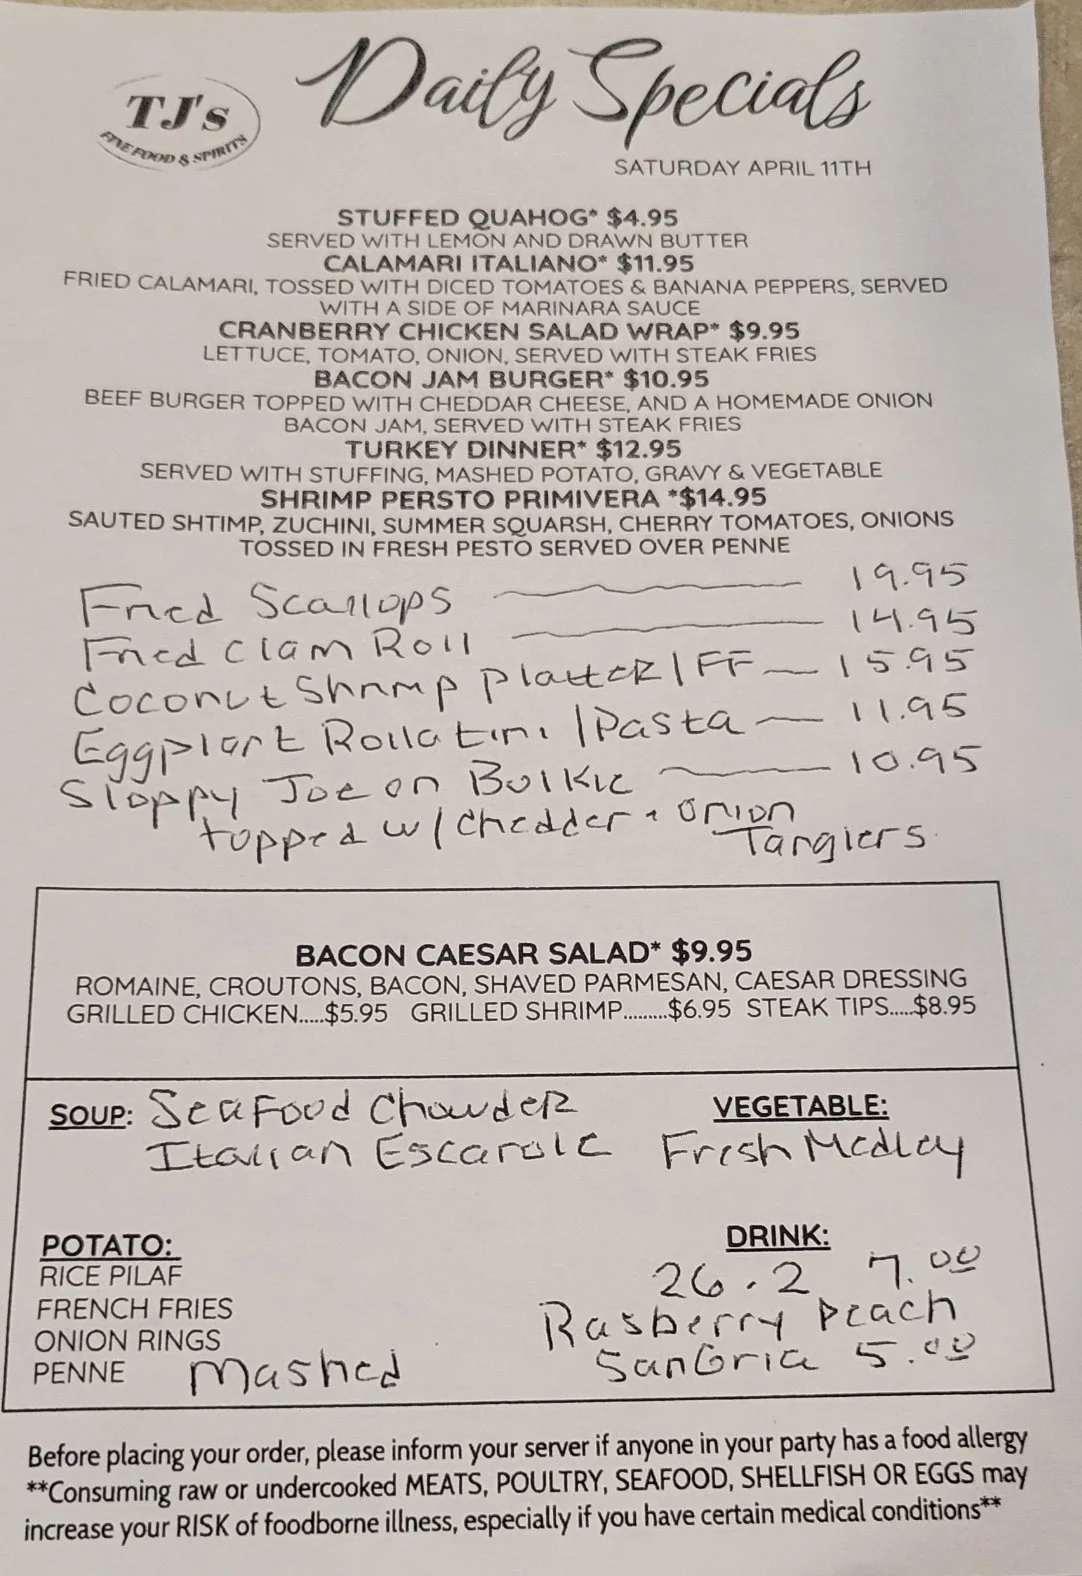 TJ's
FINE FOOD & SPIRITS
Daily Specials
SATURDAY APRIL 11TH
STUFFED QUAHOG* $4.95
SERVED WITH LEMON AND DRAWN BUTTER
CALAMARI ITALIANO* $11.95
FRIED CALAMARI, TOSSED WITH DICED TOMATOES & BANANA PEPPERS, SERVED
WITH A SIDE OF MARINARA SAUCE
CRANBERRY CHICKEN SALAD WRAP* $9.95
LETTUCE, TOMATO, ONION, SERVED WITH STEAK FRIES
BACON JAM BURGER* $10.95
BEEF BURGER TOPPED WITH CHEDDAR CHEESE, AND A HOMEMADE ONION
BACON JAM, SERVED WITH STEAK FRIES
TURKEY DINNER* $12.95
SERVED WITH STUFFING, MASHED POTATO, GRAVY & VEGETABLE
SHRIMP PERSTO PRIMIVERA *$14.95
SAUTED SHTIMP, ZUCHINI, SUMMER SQUARSH, CHERRY TOMATOES, ONIONS
TOSSED IN FRESH PESTO SERVED OVER PENNE
Fried Scallops 19.95
Fried Clam Roll 14.95
Coconut Shrimp Platter / FF 15.95
Eggplant Rollatini / Pasta 11.95
Sloppy Joe on Bulkie 10.95
topped w/ chedder + onion
Tangiers
BACON CAESAR SALAD* $9.95
ROMAINE, CROUTONS, BACON, SHAVED PARMESAN, CAESAR DRESSING
GRILLED CHICKEN.....$5.95 GRILLED SHRIMP.........$6.95 STEAK TIPS.....$8.95
SOUP: Seafood Chowder
Italian Escarole
VEGETABLE:
Fresh Medley
POTATO:
RICE PILAF
FRENCH FRIES
ONION RINGS
PENNE Mashed
DRINK:
26.2 7.00
Rasberry Peach
SanGria 5.00
Before placing your order, please inform your server if anyone in your party has a food allergy
**Consuming raw or undercooked MEATS, POULTRY, SEAFOOD, SHELLFISH OR EGGS may
increase your RISK of foodborne illness, especially if you have certain medical conditions**